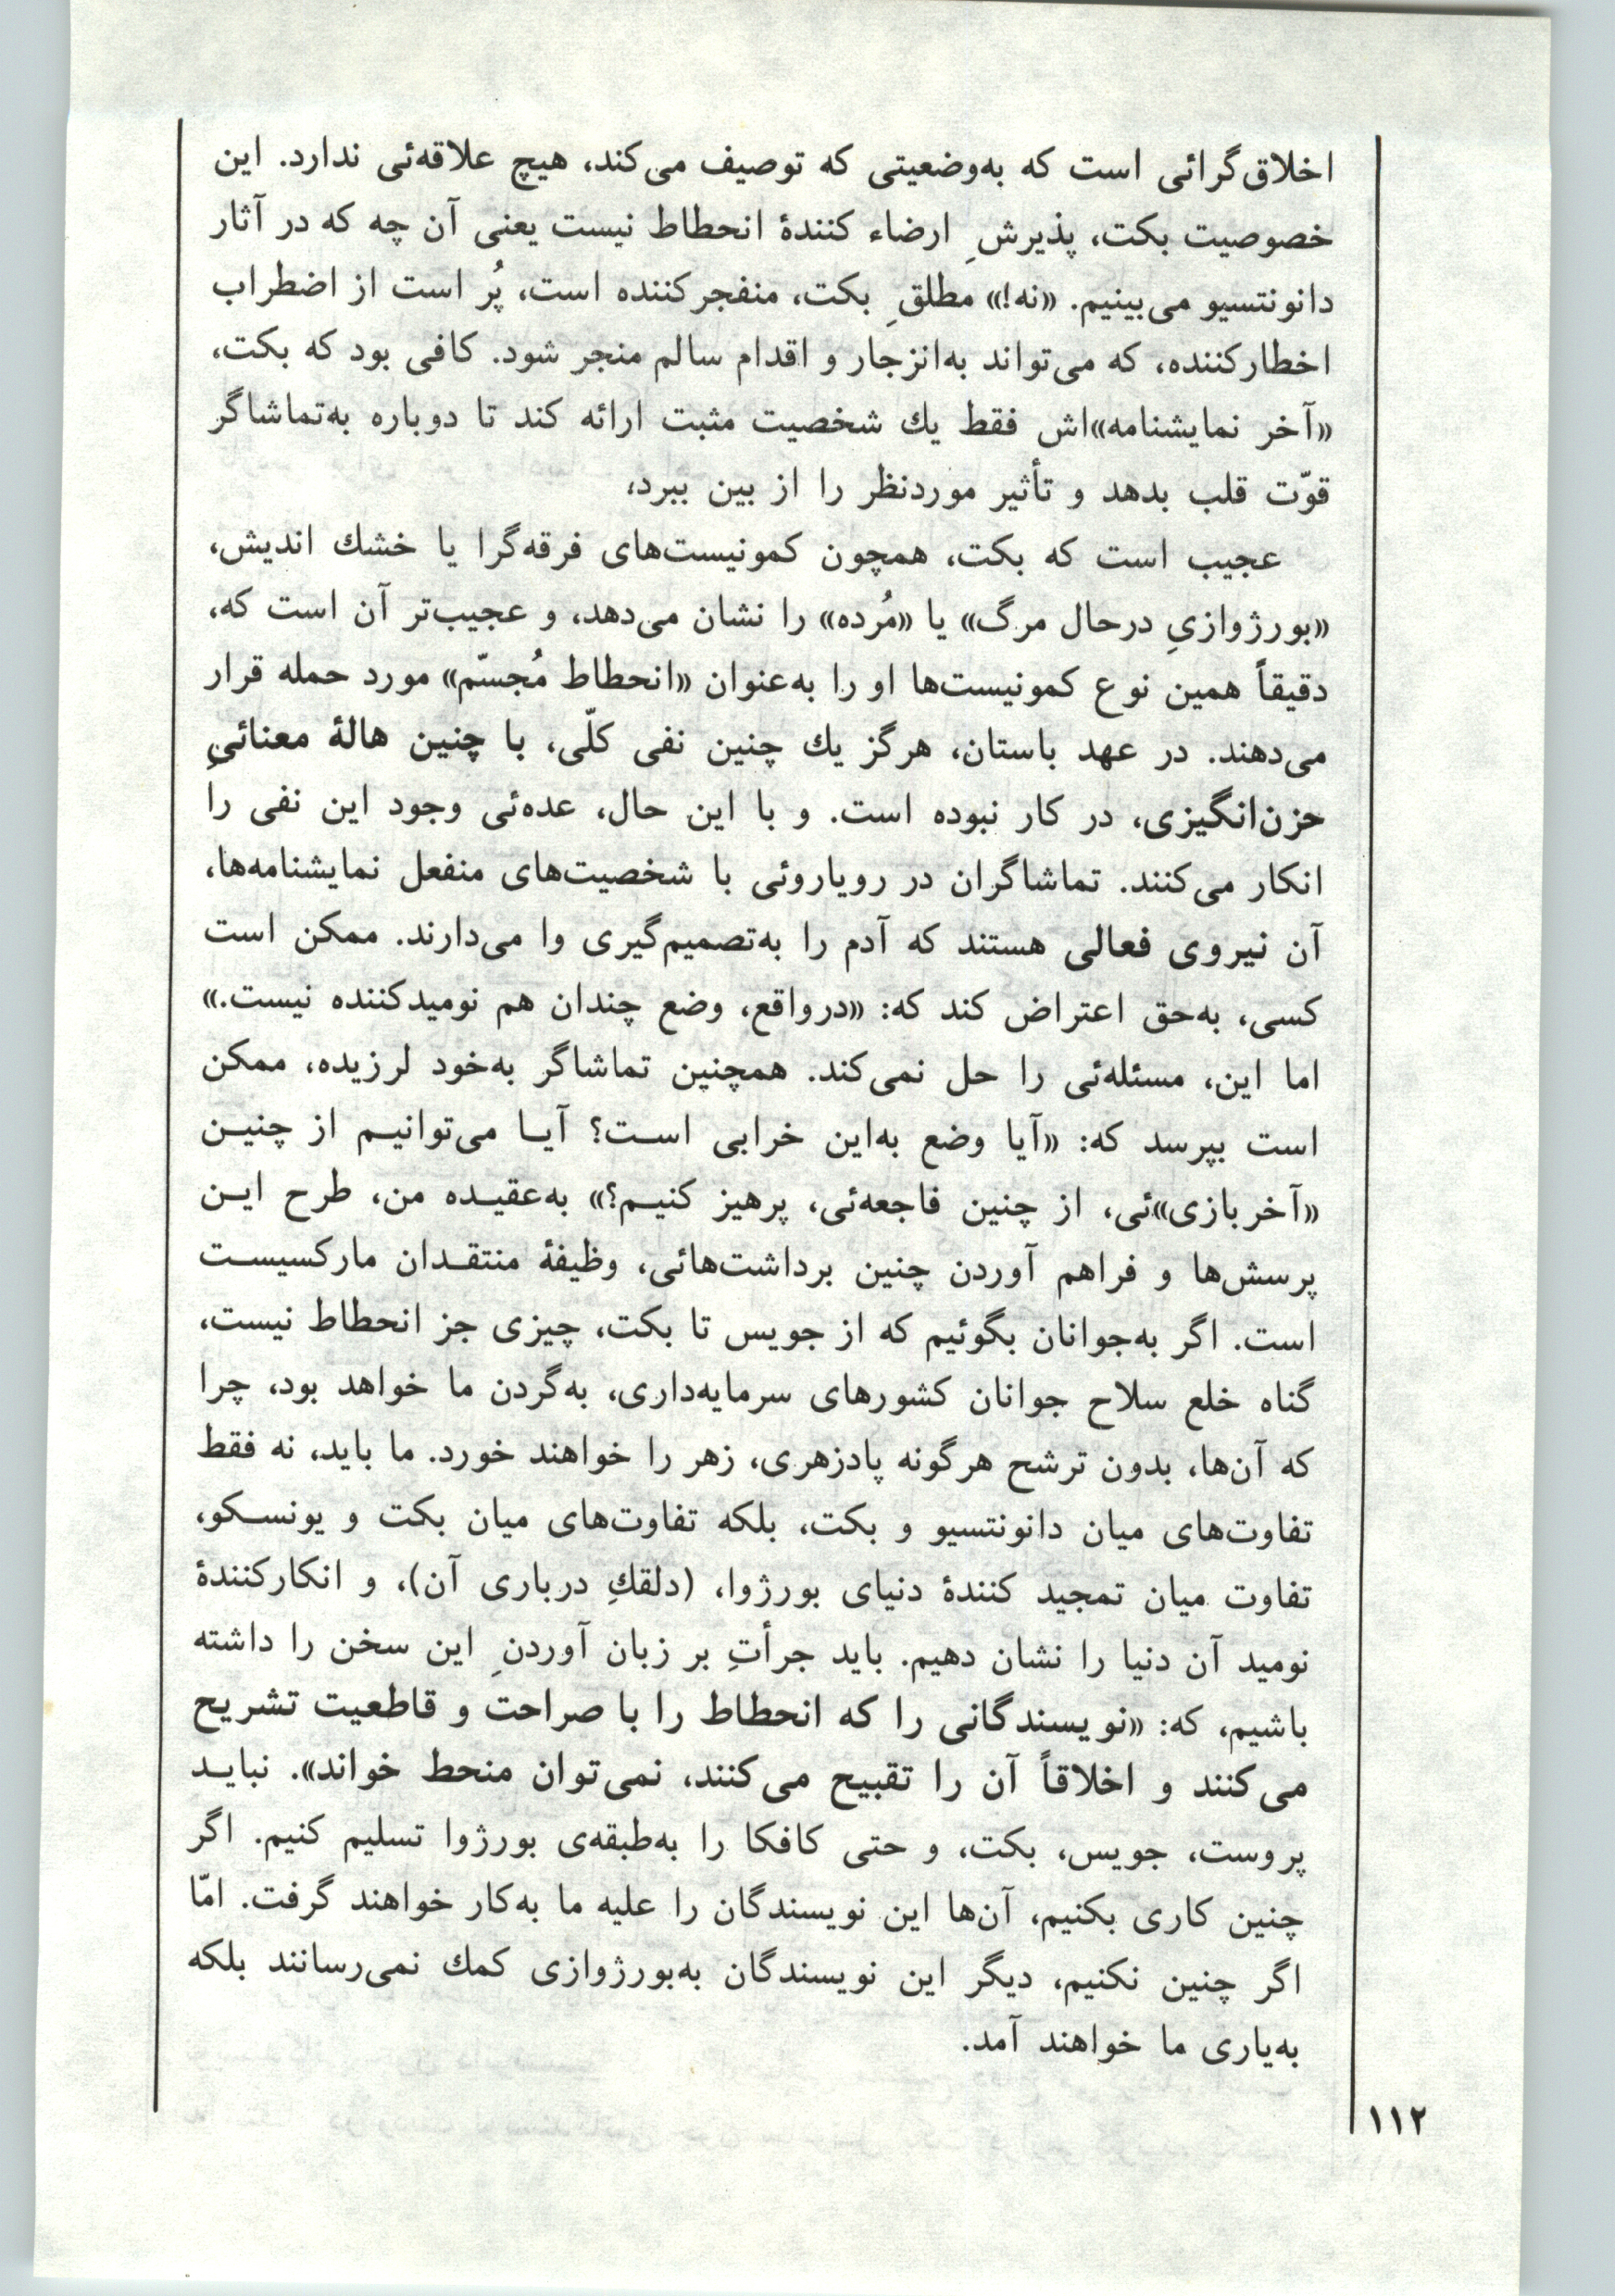 اخلاق‌گرائی است که به‌وضعیتی که توصیف می‌کند، هیچ علاقه‌ئی ندارد. این
خصوصیت بکت، پذیرشِ ارضاء کنندهٔ انحطاط نیست یعنی آن چه که در آثار
دانونتسیو می‌بینیم. «نه!» مطلقِ بکت، منفجرکننده است، پُر است از اضطراب
اخطارکننده، که می‌تواند به‌انزجار و اقدام سالم منجر شود. کافی بود که بکت،
«آخر نمایشنامه»‌اش فقط یك شخصیت مثبت ارائه کند تا دوباره به‌تماشاگر
قوّت قلب بدهد و تأثیر موردنظر را از بین ببرد،
عجیب است که بکت، همچون کمونیست‌های فرقه‌گرا یا خشك اندیش،
«بورژوازیِ درحال مرگ» یا «مُرده» را نشان می‌دهد، و عجیب‌تر آن است که،
دقیقاً همین نوع کمونیست‌ها او را به‌عنوان «انحطاط مُجسّم» مورد حمله قرار
می‌دهند. در عهد باستان، هرگز یك چنین نفی کلّی، با چنین هالهٔ معنائیِ
حزن‌انگیزی، در کار نبوده است. و با این حال، عده‌ئی وجود این نفی را
انکار می‌کنند. تماشاگران در رویاروئی با شخصیت‌های منفعل نمایشنامه‌ها،
آن نیروی فعالی هستند که آدم را به‌تصمیم‌گیری وا می‌دارند. ممکن است
کسی، به‌حق اعتراض کند که: «درواقع، وضع چندان هم نومیدکننده نیست.»
اما این، مسئله‌ئی را حل نمی‌کند. همچنین تماشاگر به‌خود لرزیده، ممکن
است بپرسد که: «آیا وضع به‌این خرابی است؟ آیا می‌توانیم از چنین
«آخربازی»‌ئی، از چنین فاجعه‌ئی، پرهیز کنیم؟» به‌عقیده من، طرح این
پرسش‌ها و فراهم آوردن چنین برداشت‌هائی، وظیفهٔ منتقدان مارکسیست
است. اگر به‌جوانان بگوئیم که از جویس تا بکت، چیزی جز انحطاط نیست،
گناه خلع سلاح جوانان کشورهای سرمایه‌داری، به‌گردن ما خواهد بود، چرا
که آن‌ها، بدون ترشح هرگونه پادزهری، زهر را خواهند خورد. ما باید، نه فقط
تفاوت‌های میان دانونتسیو و بکت، بلکه تفاوت‌های میان بکت و یونسکو،
تفاوت میان تمجید کنندهٔ دنیای بورژوا، (دلقكِ درباری آن)، و انکارکنندهٔ
نومید آن دنیا را نشان دهیم. باید جرأتِ بر زبان آوردنِ این سخن را داشته
باشیم، که: «نویسندگانی را که انحطاط را با صراحت و قاطعیت تشریح
می‌کنند و اخلاقاً آن را تقبیح می‌کنند، نمی‌توان منحط خواند». نباید
پروست، جویس، بکت، و حتی کافکا را به‌طبقه‌ی بورژوا تسلیم کنیم. اگر
چنین کاری بکنیم، آن‌ها این نویسندگان را علیه ما به‌کار خواهند گرفت. امّا
اگر چنین نکنیم، دیگر این نویسندگان به‌بورژوازی کمك نمی‌رسانند بلکه
به‌یاری ما خواهند آمد.
۱۱۲